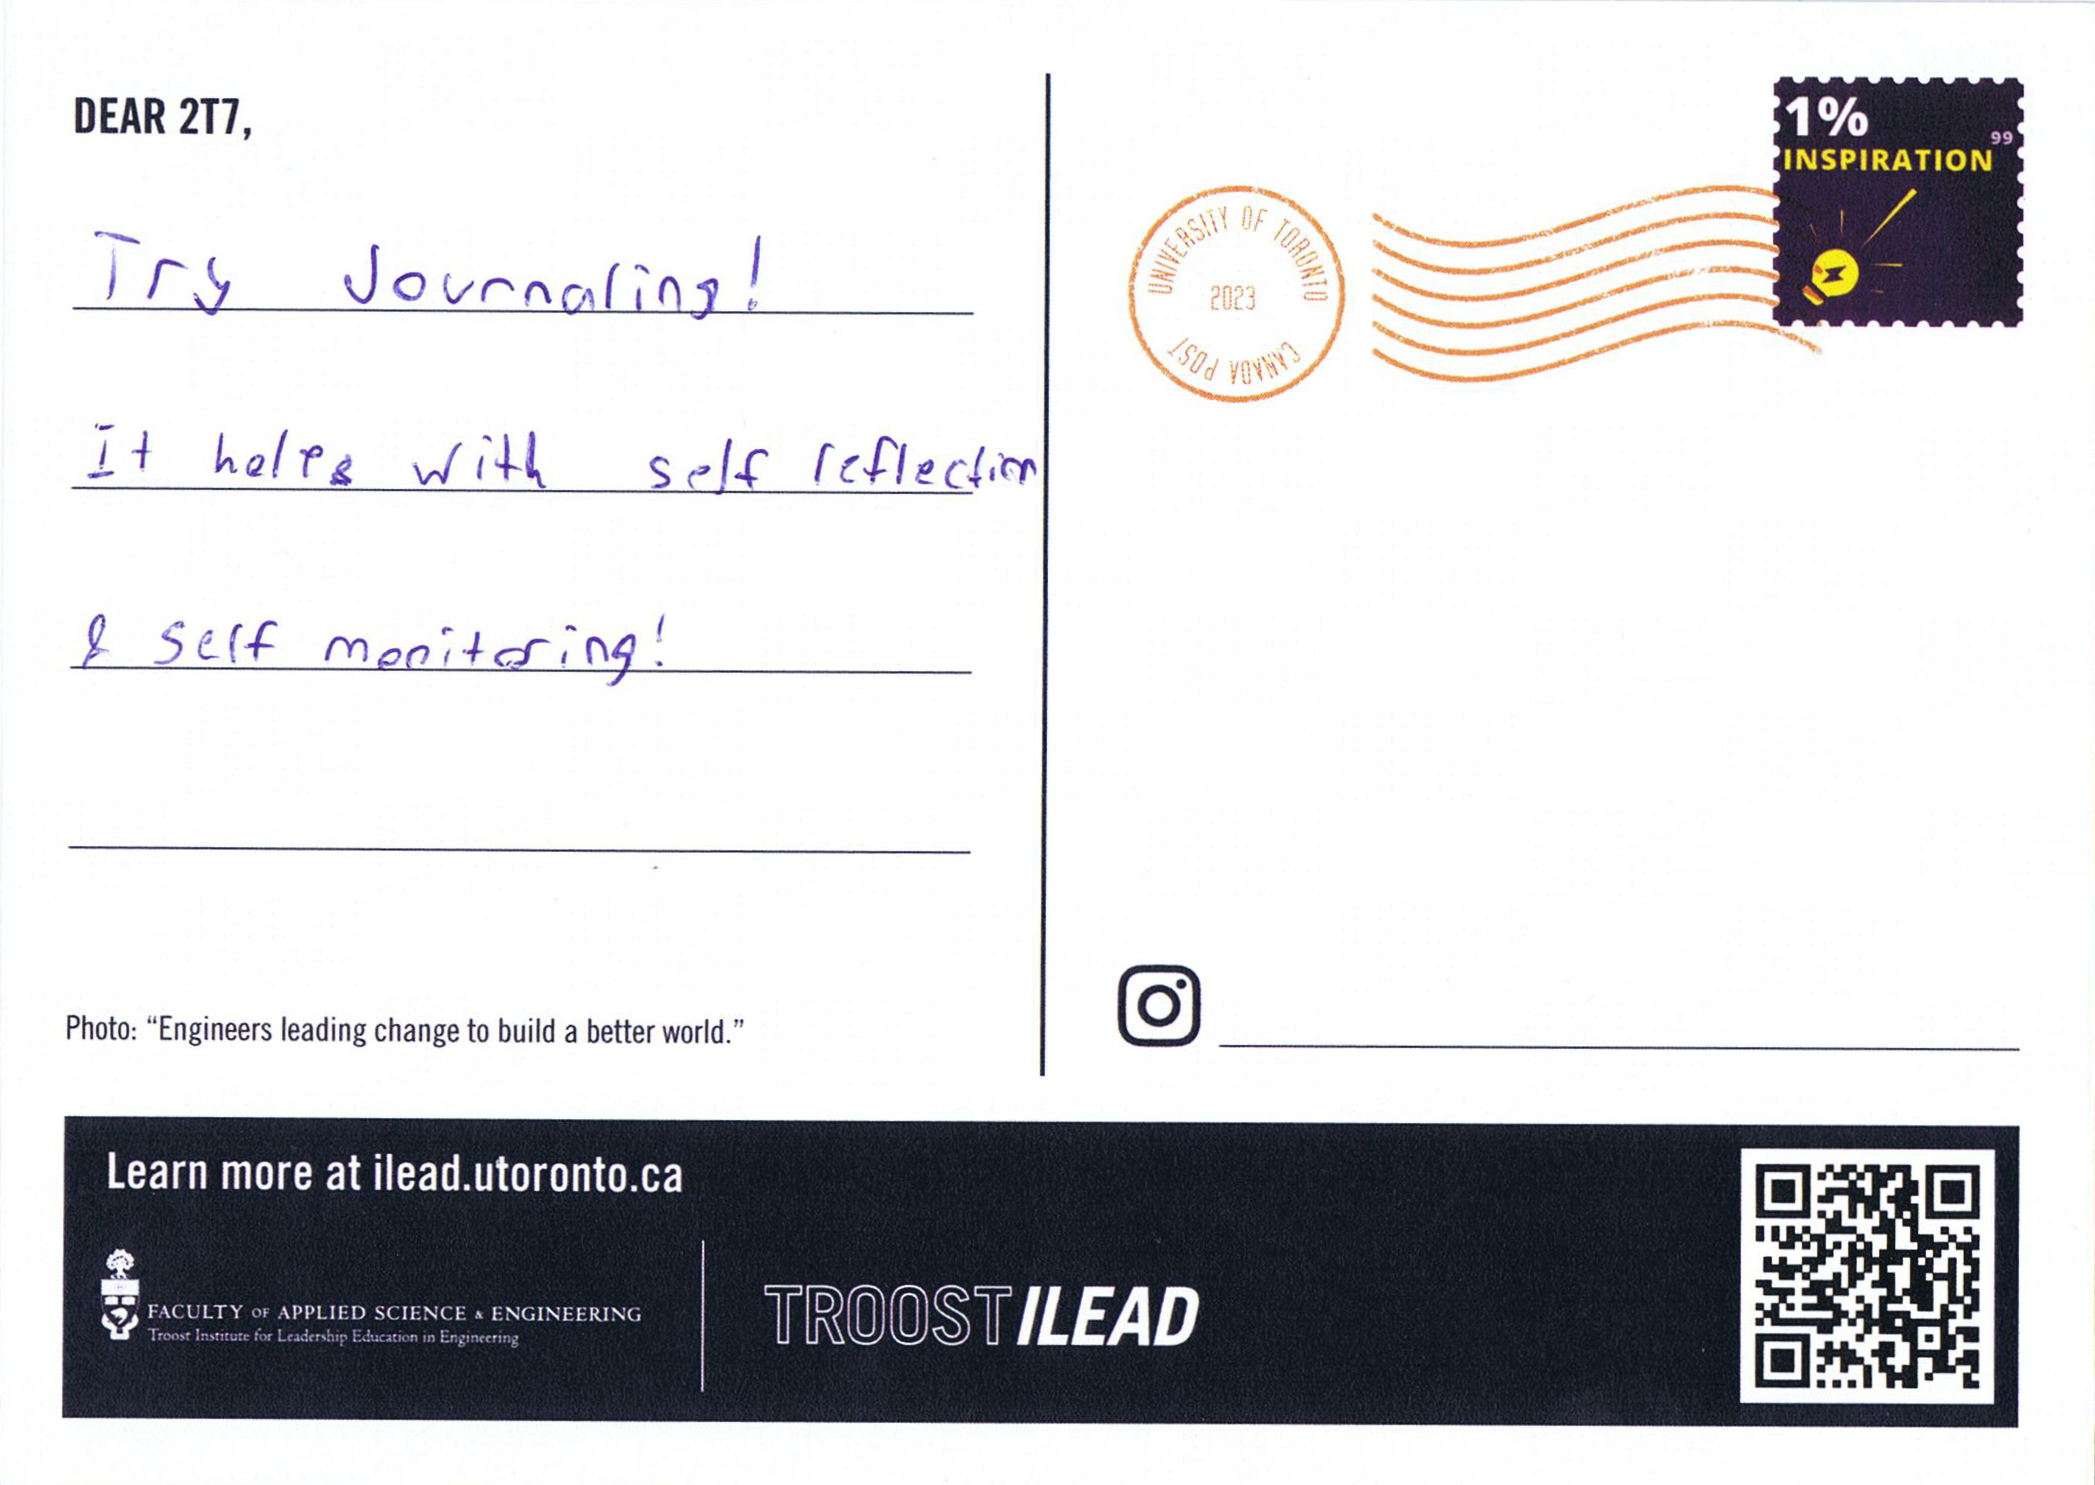 DEAR 2T7,
Try Journaling!
It helps with self reflection
& self monitoring!
Photo: “Engineers leading change to build a better world.”
1%
99
INSPIRATION
UNIVERSITY OF TORONTO
2023
CANADA POST
Learn more at ilead.utoronto.ca
FACULTY OF APPLIED SCIENCE & ENGINEERING
Troost Institute for Leadership Education in Engineering
TROOST ILEAD